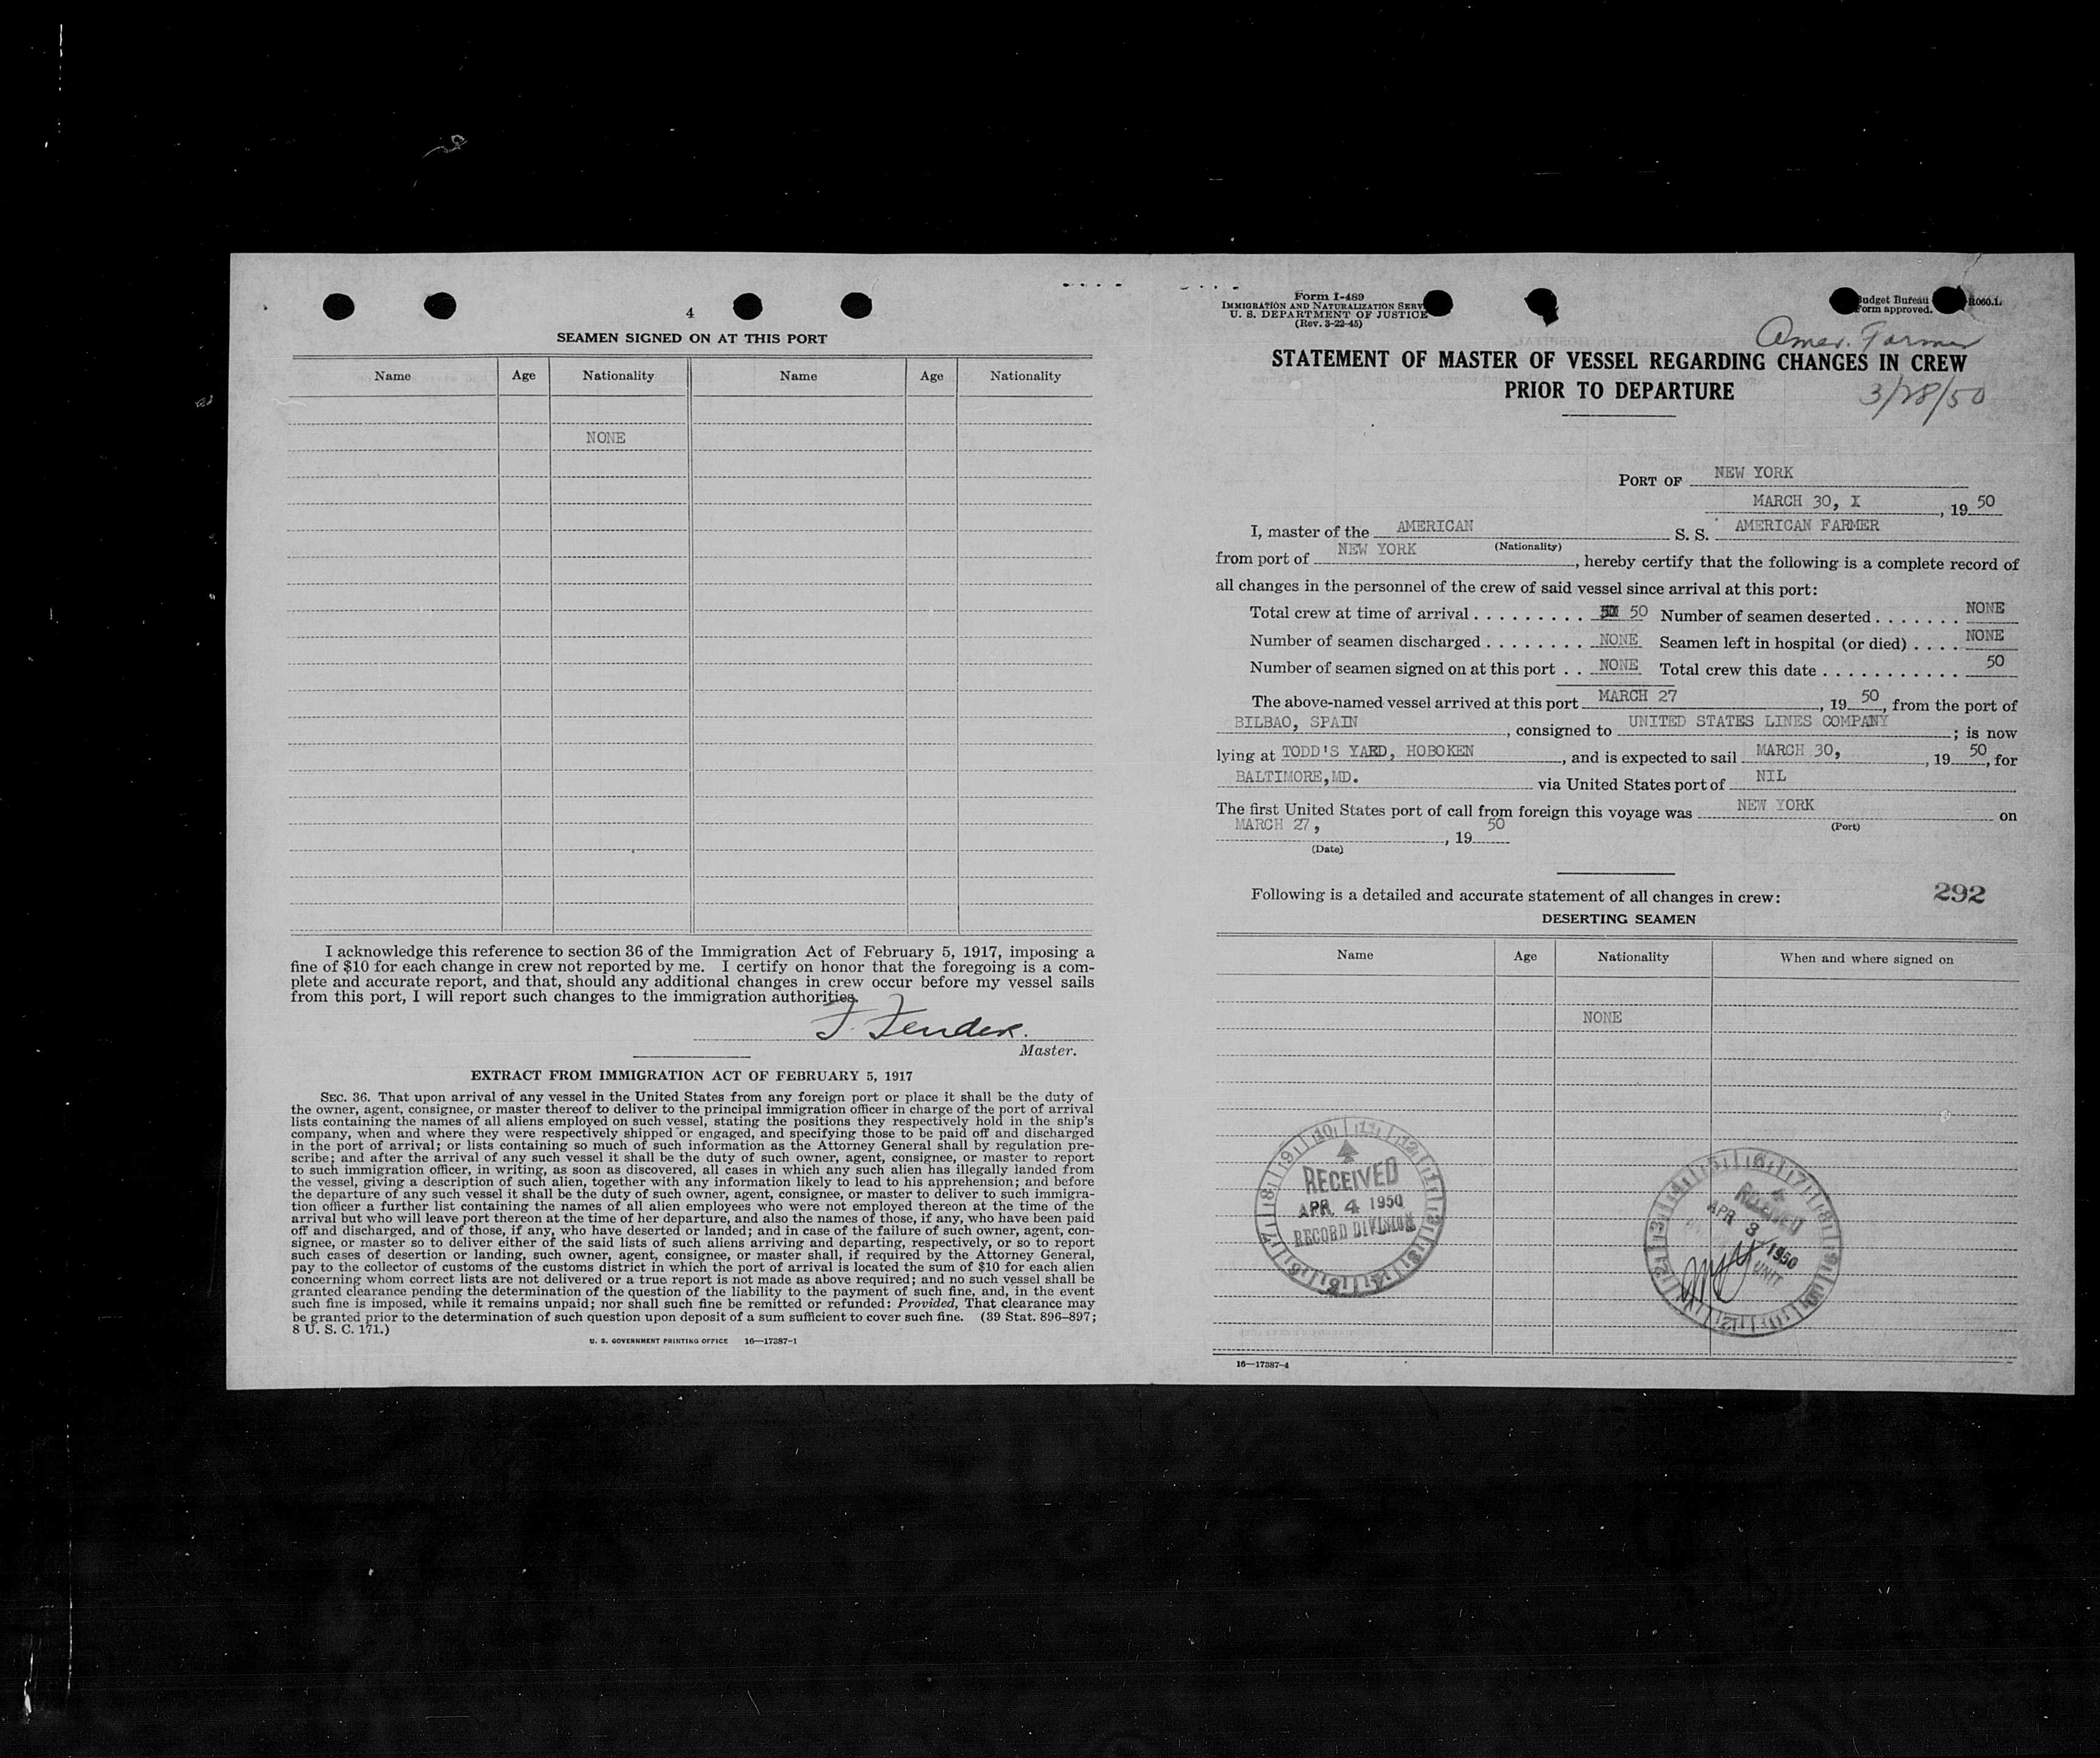 4
SEAMEN SIGNED ON AT THIS PORT
Name Age Nationality Name Age Nationality
NONE
I acknowledge this reference to section 36 of the Immigration Act of February 5, 1917, imposing a
fine of $10 for each change in crew not reported by me. I certify on honor that the foregoing is a com-
plete and accurate report, and that, should any additional changes in crew occur before my vessel sails
from this port, I will report such changes to the immigration authorities.
Master.
EXTRACT FROM IMMIGRATION ACT OF FEBRUARY 5, 1917
SEC. 36. That upon arrival of any vessel in the United States from any foreign port or place it shall be the duty of
the owner, agent, consignee, or master thereof to deliver to the principal immigration officer in charge of the port of arrival
lists containing the names of all aliens employed on such vessel, stating the positions they respectively hold in the ship's
company, when and where they were respectively shipped or engaged, and specifying those to be paid off and discharged
in the port of arrival; or lists containing so much of such information as the Attorney General shall by regulation pre-
scribe; and after the arrival of any such vessel it shall be the duty of such owner, agent, consignee, or master to report
to such immigration officer, in writing, as soon as discovered, all cases in which any such alien has illegally landed from
the vessel, giving a description of such alien, together with any information likely to lead to his apprehension; and before
the departure of any such vessel it shall be the duty of such owner, agent, consignee, or master to deliver to such immigra-
tion officer a further list containing the names of all alien employees who were not employed thereon at the time of the
arrival but who will leave port thereon at the time of her departure, and also the names of those, if any, who have been paid
off and discharged, and of those, if any, who have deserted or landed; and in case of the failure of such owner, agent, con-
signee, or master so to deliver either of the said lists of such aliens arriving and departing, respectively, or so to report
such cases of desertion or landing, such owner, agent, consignee, or master shall, if required by the Attorney General,
pay to the collector of customs of the customs district in which the port of arrival is located the sum of $10 for each alien
concerning whom correct lists are not delivered or a true report is not made as above required; and no such vessel shall be
granted clearance pending the determination of the question of the liability to the payment of such fine, and, in the event
such fine is imposed, while it remains unpaid; nor shall such fine be remitted or refunded: Provided, That clearance may
be granted prior to the determination of such question upon deposit of a sum sufficient to cover such fine. (39 Stat. 896–897;
8 U. S. C. 171.)
U. S. GOVERNMENT PRINTING OFFICE 16—17387-1
Form I-489
IMMIGRATION AND NATURALIZATION SERV
U. S. DEPARTMENT OF JUSTICE
(Rev. 3-22-45)
udget Bureau R060.1.
orm approved.
Amer. Farmer
STATEMENT OF MASTER OF VESSEL REGARDING CHANGES IN CREW
PRIOR TO DEPARTURE
3/28/50
PORT OF NEW YORK
MARCH 30, X, 19 50
I, master of the AMERICAN S. S. AMERICAN FARMER
(Nationality)
from port of NEW YORK, hereby certify that the following is a complete record of
all changes in the personnel of the crew of said vessel since arrival at this port:
Total crew at time of arrival . . . . . . . . . 50 Number of seamen deserted . . . . . . . NONE
Number of seamen discharged . . . . . . . . NONE Seamen left in hospital (or died) . . . . NONE
Number of seamen signed on at this port . . NONE Total crew this date . . . . . . . . . . . 50
The above-named vessel arrived at this port MARCH 27, 19 50, from the port of
BILBAO, SPAIN, consigned to UNITED STATES LINES COMPANY; is now
lying at TODD'S YARD, HOBOKEN, and is expected to sail MARCH 30, , 19 50, for
BALTIMORE,MD. via United States port of NIL
The first United States port of call from foreign this voyage was NEW YORK on
(Port)
MARCH 27, , 19 50
(Date)
Following is a detailed and accurate statement of all changes in crew: 292
DESERTING SEAMEN
Name Age Nationality When and where signed on
NONE
RECEIVED
APR 4 1950
RECORD DIVISION
RECEIVED
APR 3 1950
UNIT
16—17387-4